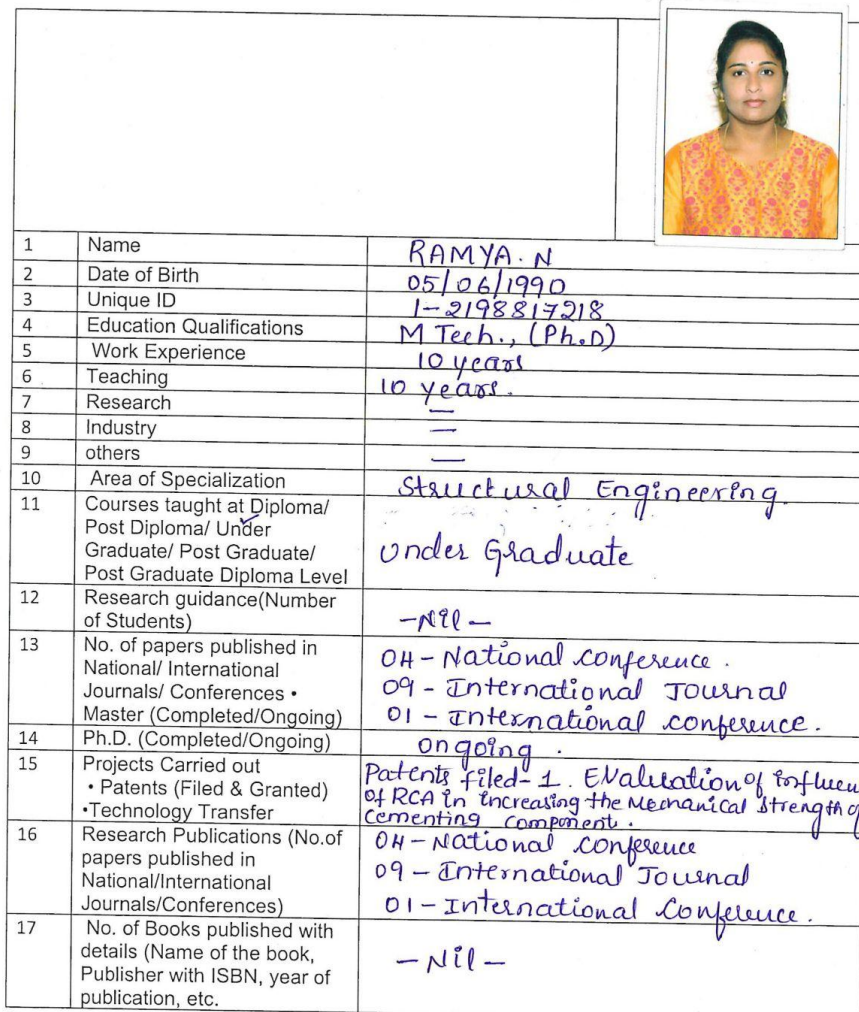 1 Name RAMYA. N
2 Date of Birth 05/06/1990
3 Unique ID 1-2198817218
4 Education Qualifications M Tech., (Ph.D)
5 Work Experience 10 years
6 Teaching 10 years.
7 Research —
8 Industry —
9 others —
10 Area of Specialization Structural Engineering.
11 Courses taught at Diploma/
Post Diploma/ Under
Graduate/ Post Graduate/
Post Graduate Diploma Level
Under Graduate
12 Research guidance(Number
of Students)
-Nil-
13 No. of papers published in
National/ International
Journals/ Conferences •
Master (Completed/Ongoing)
04 - National conference.
09 - International Journal
01 - International conference.
14 Ph.D. (Completed/Ongoing) ongoing.
15 Projects Carried out
• Patents (Filed & Granted)
•Technology Transfer
Patents filed-1. Evaluation of Influen
of RCA in increasing the Mechanical strength of
cementing component.
16 Research Publications (No.of
papers published in
National/International
Journals/Conferences)
04 - National conference
09 - International Journal
01 - International Conference.
17 No. of Books published with
details (Name of the book,
Publisher with ISBN, year of
publication, etc.
- Nil -